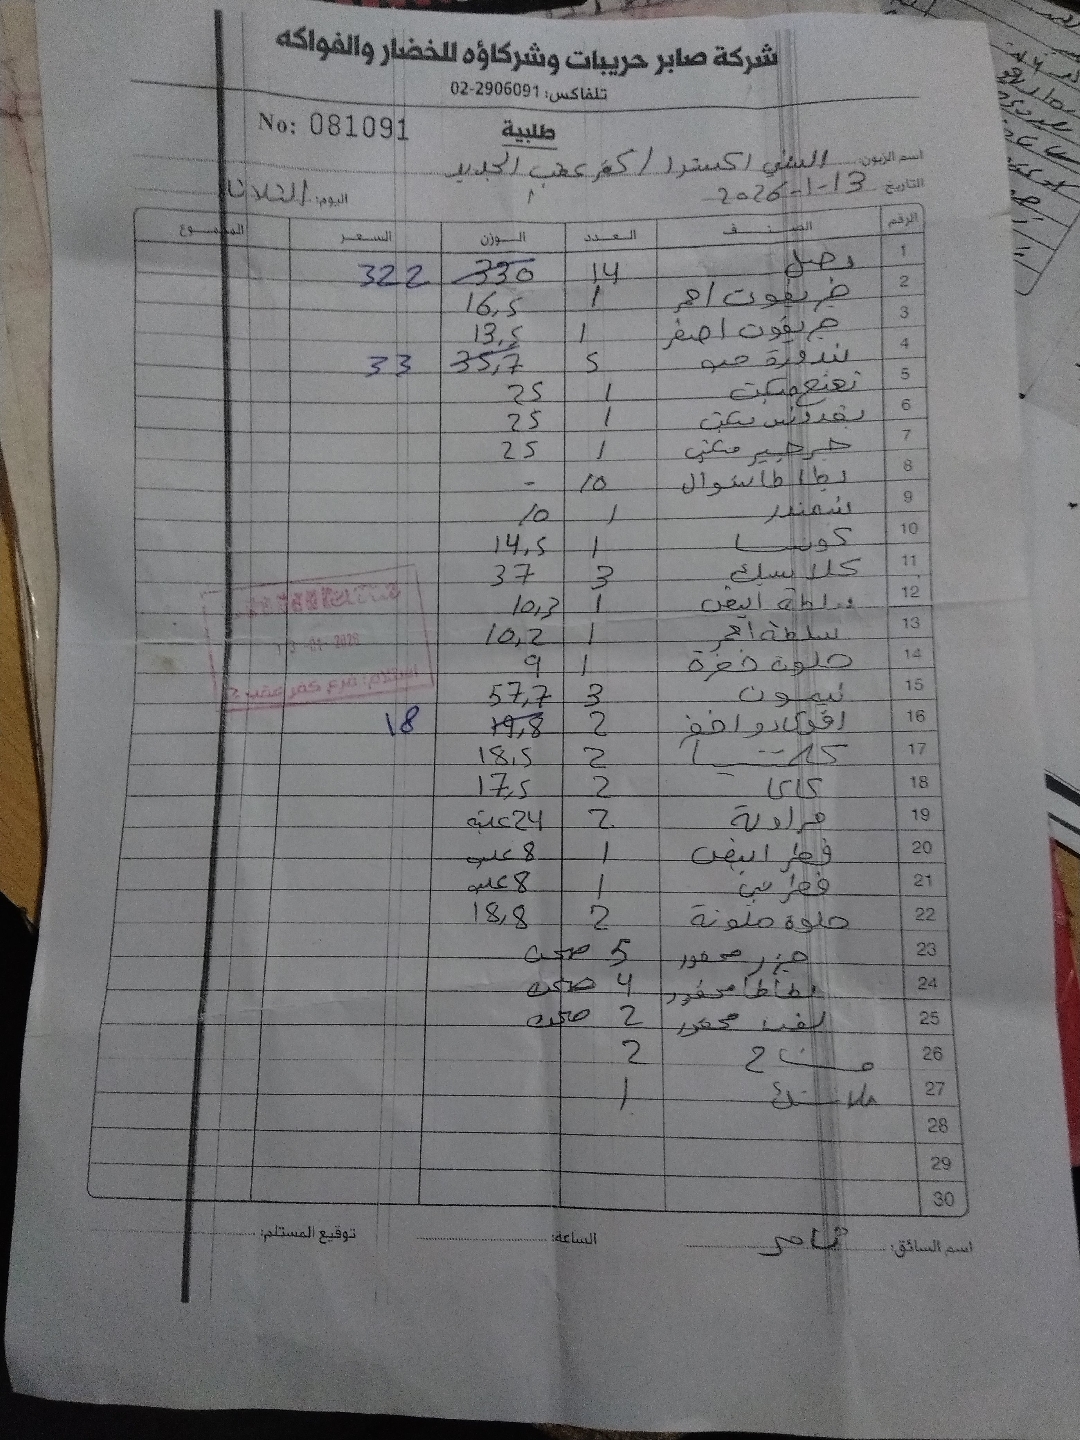 شركة صابر حريبات وشركاؤه للخضار والفواكه
تلفاكس: 02-2906091
No: 081091
طلبية
اسم الزبون: السني اكسترا / كفر عقب الجديد
التاريخ 13-1-2026 اليوم: الثلاثا
الرقم الصنف العدد الوزن السعر المجموع
1 بصل 14 330 322
2 جريفوت احمر 1 16,5
3 جريفوت اصفر 1 13,5
4 بندورة 5 35,7 33
5 نعنع 1 25
6 بقدونس 1 25
7 جرجير 1 25
8 بطاطا شوال 10 -
9 شمندر 1 10
10 كوسا 1 14,5
11 كلاسك 3 37
12 سلطة ابيض 1 10,3
13 سلطة احمر 1 10,2
14 حلوة 1 9
15 ليمون 3 57,7
16 افوكادو 2 19,8 18
17 2 18,5
18 كاكا 2 17,5
19 فراولة 2 24 علبة
20 فطر ابيض 1 8 علب
21 فطر بني 1 8 علب
22 حلوة ملونة 2 18,8
23 جزر محفور 5 صحن
24 بطاطا محفور 4 صحن
25 لفت محفور 2 صحن
26 2
27 1
28
29
30
13-01-2026
استلام: فرع كفر عقب
اسم السائق: ثامر الساعة: توقيع المستلم: